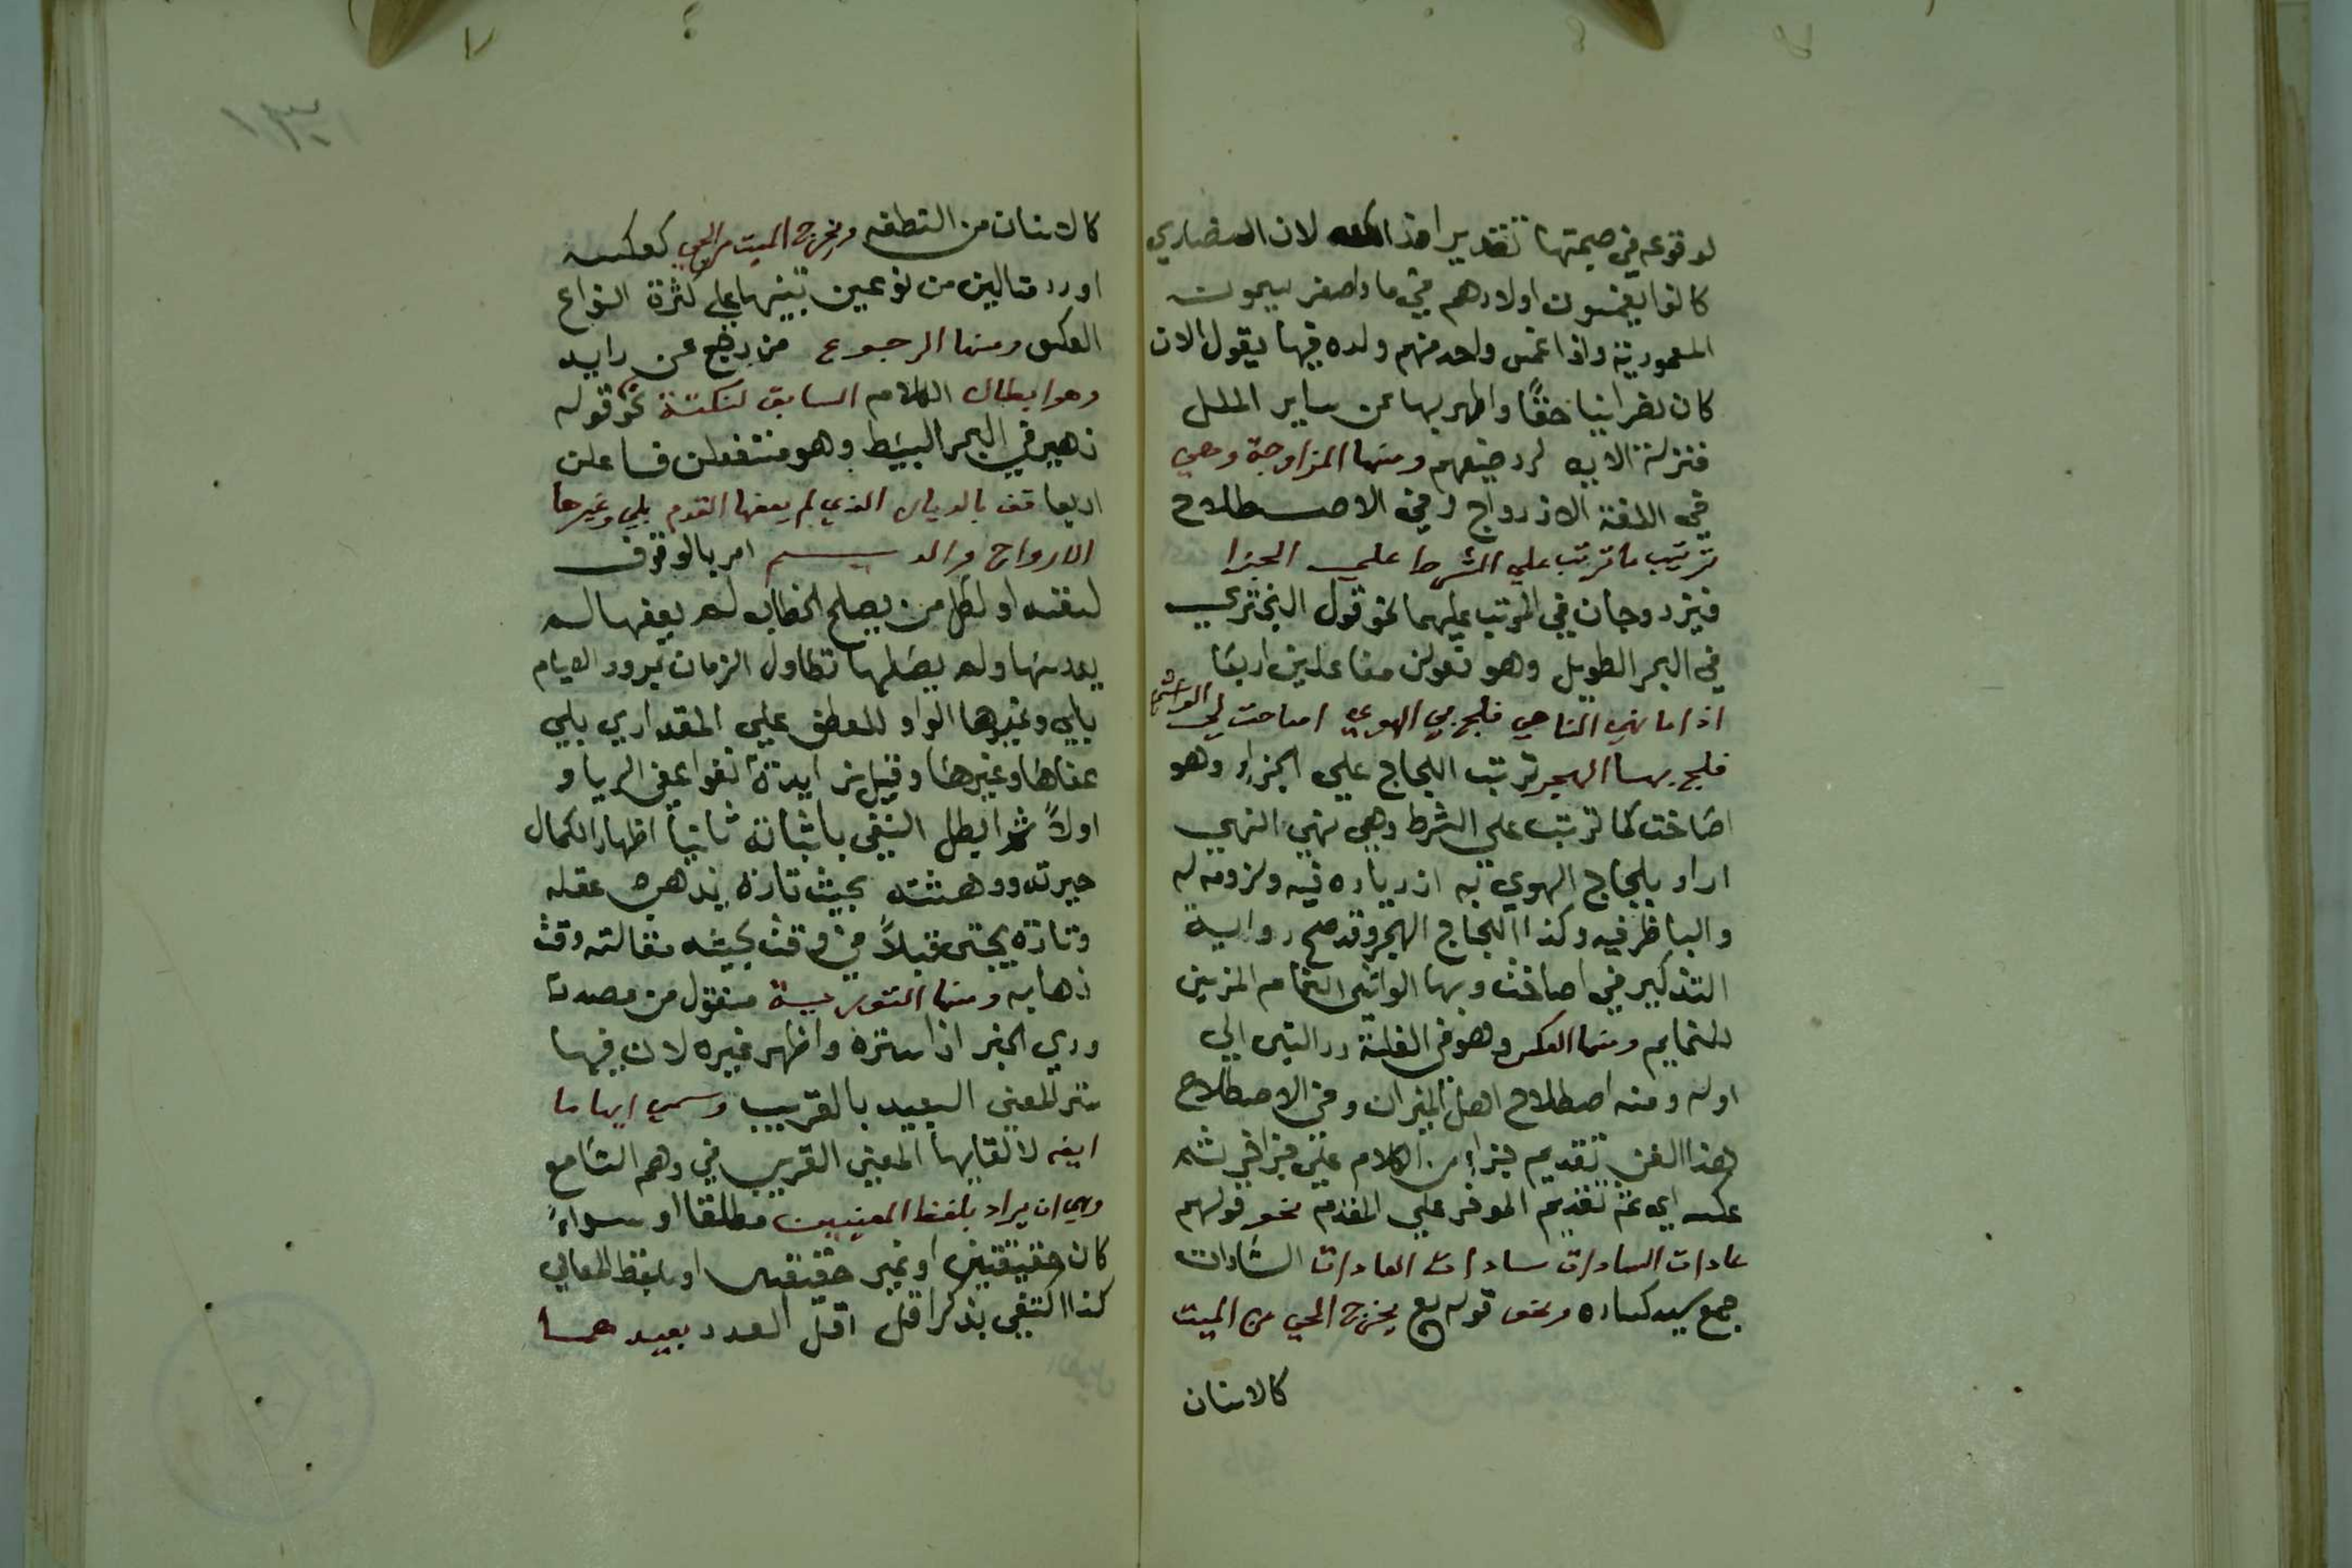 لوقوعه في صحبتها تقديرا هذا كله لان النصاري
كانوا يغمسون اولادهم في ماء اصفر يسمونه
المعمورية واذا غمس واحد منهم ولده فيها يقول الان
كان نصرانيا حقًا واطهر بها عن ساير الملل
فنزلت الايه لرد صنيعهم ومنها المزاوجة وهي
في اللغة الازدواج وفي الاصطلاح
ترتيب ما ترتب علي الشرط علي الجزا
فيزدوجان في المرتب عليهما نحو قول البختري
في البحر الطويل وهو فعولن مفاعلين اربعا
اذا ما نهي الناهي فلج بي الهوي اصاحت الي الواشي
فلج بها الهجر ترتب اللجاج علي الجزاء وهو
اصاخت كما ترتب علي الشرط وهي نهي النهي
اراد بلجاج الهوي به ازدياده فيه ولزومه له
والبا ظرفيه وكذا اللجاج الهجر وقد صح رواية
التذكير في اصاخت وبها الواشي التمام المزين
للتمايم ومنها العكس وهو في اللغة رد الشي الي
اوله ومنه اصطلاح اهل الميزان وفي الاصطلاح
لهذا الفن تقديم جزاء من الكلام علي جزا اخر ثم
عكسه اي ثم تقديم الموخر علي المقدم نحو قولهم
عادات السادات سادات العادات السادات
جمع سيد كساده ونحو قوله تع يخرج الحي من الميت
كالانسان
كالانسان من النطفه ومخرج الميت من الحي كعكسه
اورد مثالين من نوعين تنبيها علي كثرة انواع
العكس ومنها الرجوع من رجع عن رايه
وهو ابطال الكلام السابق لنكتة نحو قوله
زهير في البحر البسيط وهو مستفعلن فاعلن
اربعا قف بالديار الذي لم يعفها القدم بلي وغيرها
الارواح والديـــم امر بالوقوف
لنفسه او لكل من يصلح الخطاب لم يعفها لم
يدرسها ولم يضلها تطاول الزمان بمرور الايام
بلي وغيرها الواو للعطف علي المقدر اي بلي
عفاها وغيرها وقيل زايدة نفوا عفي الريا و
اولاً ثم ابطل النفي باثباته ثانياً اظهار الكمال
حيرته ودهشته بحيث تارة يذهب عقله
وتارة يجئ قبلاً في وقت مجيئه مقالته وقت
ذهابه ومنها التورية منقول من مصدر
وري الخبر اذا ستره واظهر غيره لان فيها
ستر المعني البعيد بالقريب وسمي ايهاما
ايضا لالقايها المعني القريب في وهم السامع
وهي ان يراد بلفظ المعنيين مطلقا او سواءً
كان حقيقتين او غير حقيقتين او بلفظ المعاني
كذا اكتفي بذكر اقل اقل العدد بعيدهما